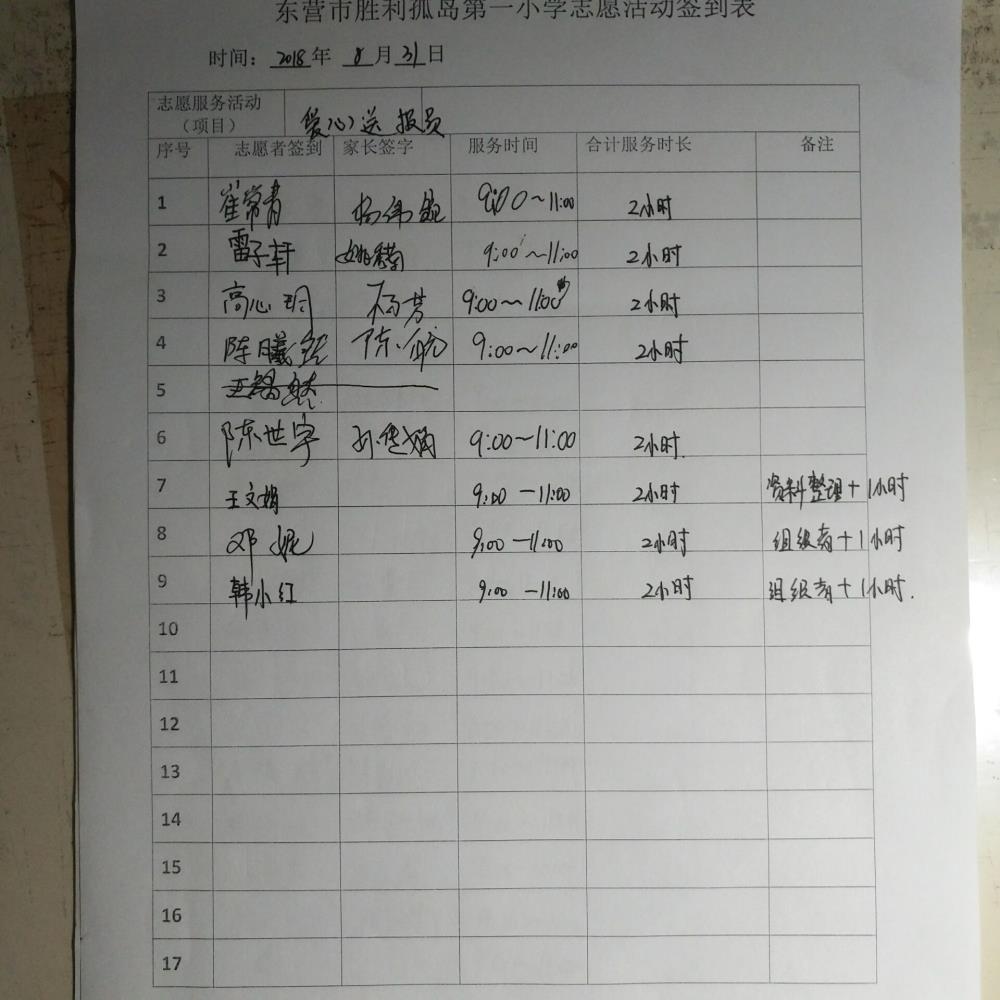 东营市胜利孤岛第一小学志愿活动签到表
时间: 2018 年 8 月 31 日
志愿服务活动（项目） 爱心送报员
序号 志愿者签到 家长签字 服务时间 合计服务时长 备注
1 崔常青 杨伟 9:00~11:00 2小时
2 雷子轩 9:00~11:00 2小时
3 高心玥 石芳 9:00~11:00 2小时
4 陈曦 陈 9:00~11:00 2小时
5
6 陈世宇 孙 娟 9:00~11:00 2小时.
7 王文娟 9:00 -11:00 2小时 资料整理+1小时
8 邓妮 9:00 -11:00 2小时 组织者+1小时
9 韩小红 9:00 -11:00 2小时 组织者+1小时.
10
11
12
13
14
15
16
17